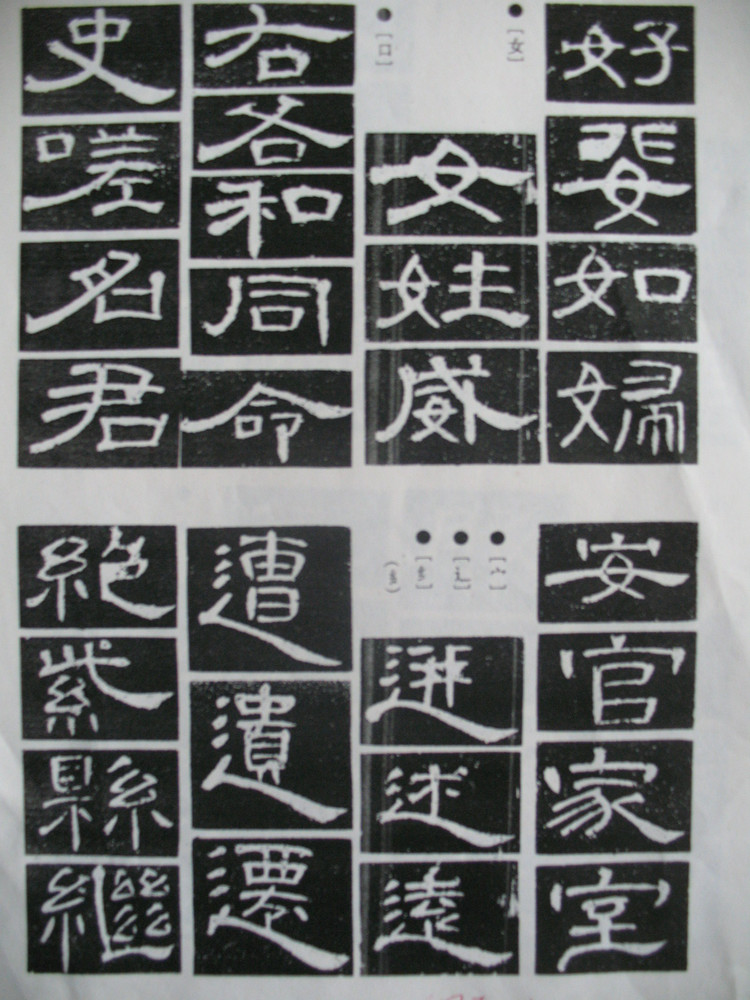 好婓如婦
[女]
女姓威
[口]
右各和同命
史嗟名君
安官家室
[宀]
[辶]
述遠
遭遺
絕紫縣繼